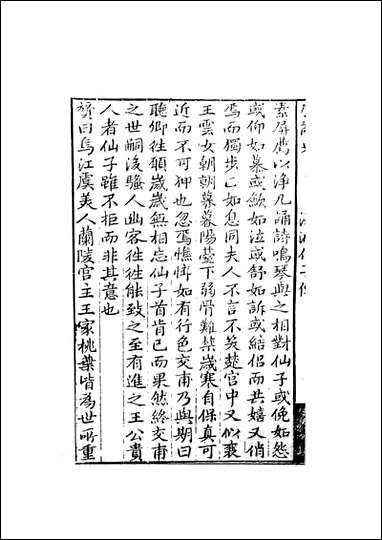 素屏薦以淨几誦詩鳴琴與之相對仙子或俛如怨
或仰如慕或歛如泣或舒如訴或結侶而共嬉又俏
焉而獨步乙如息同夫人不言不笑楚宮中又似襄
王雲女朝朝暮暮陽臺下弱骨難禁歲寒自保真可
近而不可狎也忽焉憔悴如有行色交甫乃與期曰
聽卿往願歲歲無相忘仙子首肯已而果然終交甫
之世嗣後騷人幽客往往能致之至有進之王公貴
人者仙子雖不拒而非其意也
贊曰烏江虞美人蘭陵宮主王家桃葉皆為世所重